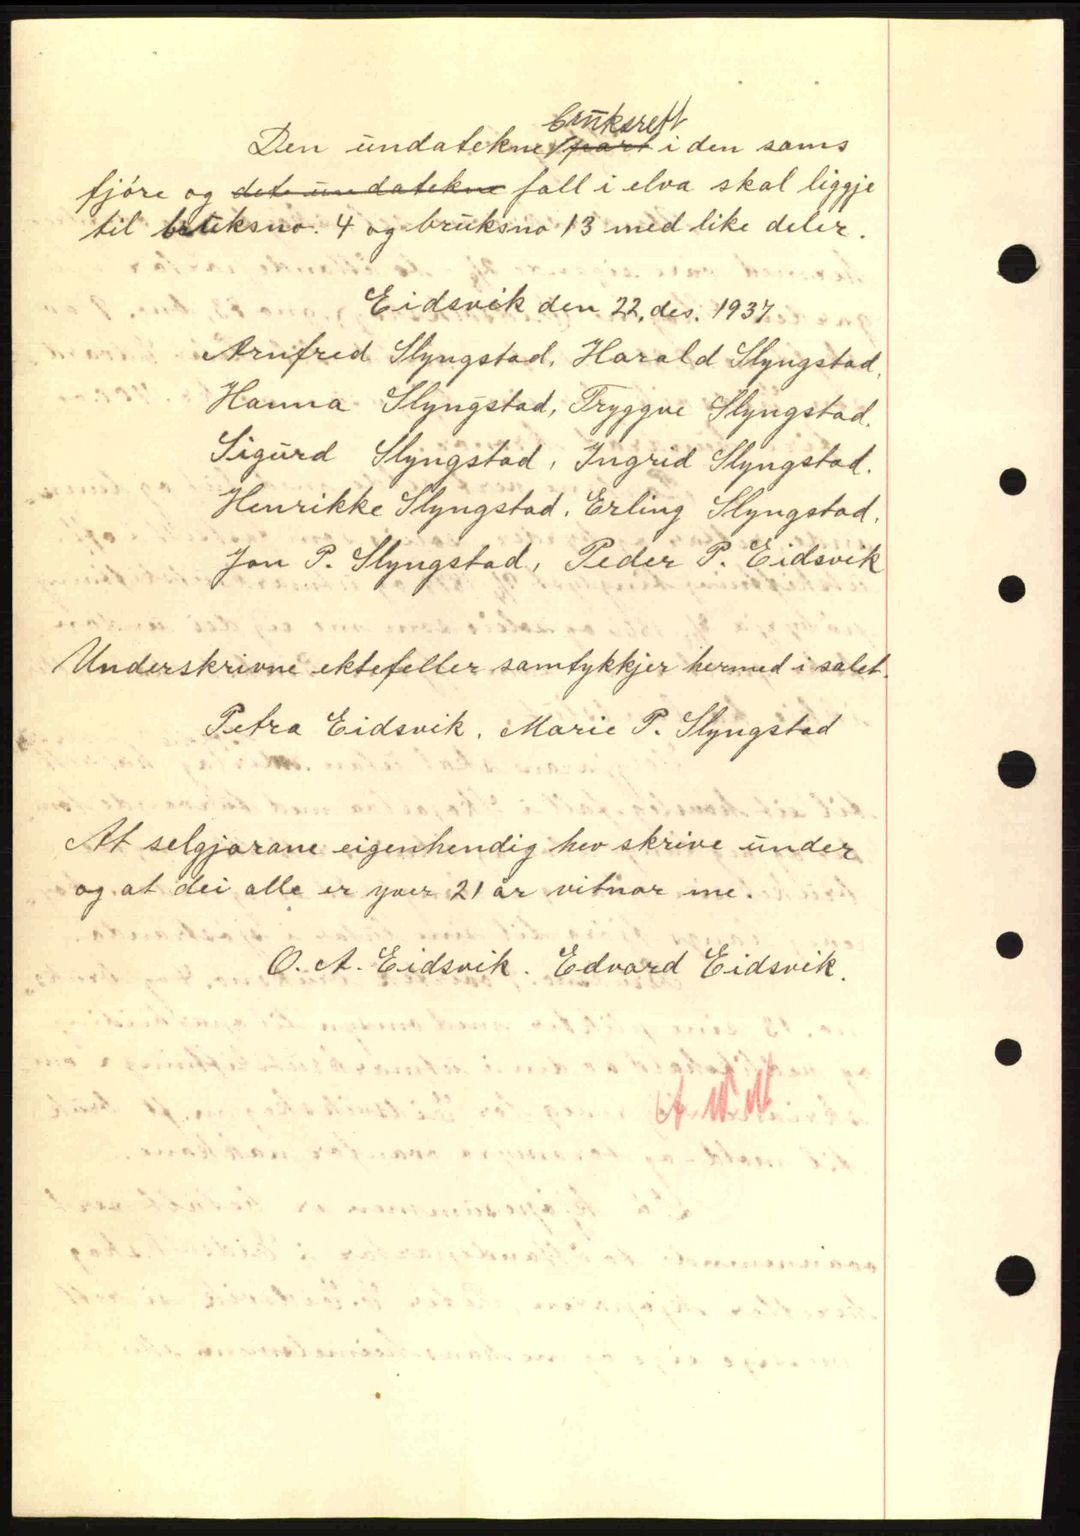 Den undatekne bruksrett part i den sams
fjöre og det undatekne fall i elva skal liggje
til bruksno. 4 og bruksno 13 med like deler.
Eidsvik den 22. des. 1937
Arnfred Slyngstad, Harald Slyngstad,
Hanna Slyngstad, Tryggve Slyngstad.
Sigurd Slyngstad, Ingrid Slyngstad.
Henrikke Slyngstad, Erling Slyngstad,
Jon P. Slyngstad, Peder P. Eidsvik
Underskrivne ektefeller samtykkjer hermed i salet.
Petra Eidsvik, Marie P. Slyngstad
At selgjarane eigenhendig hev skrive under
og at dei alle er yver 21 år vitnar me.
O. A. Eidsvik. Edvard Eidsvik.